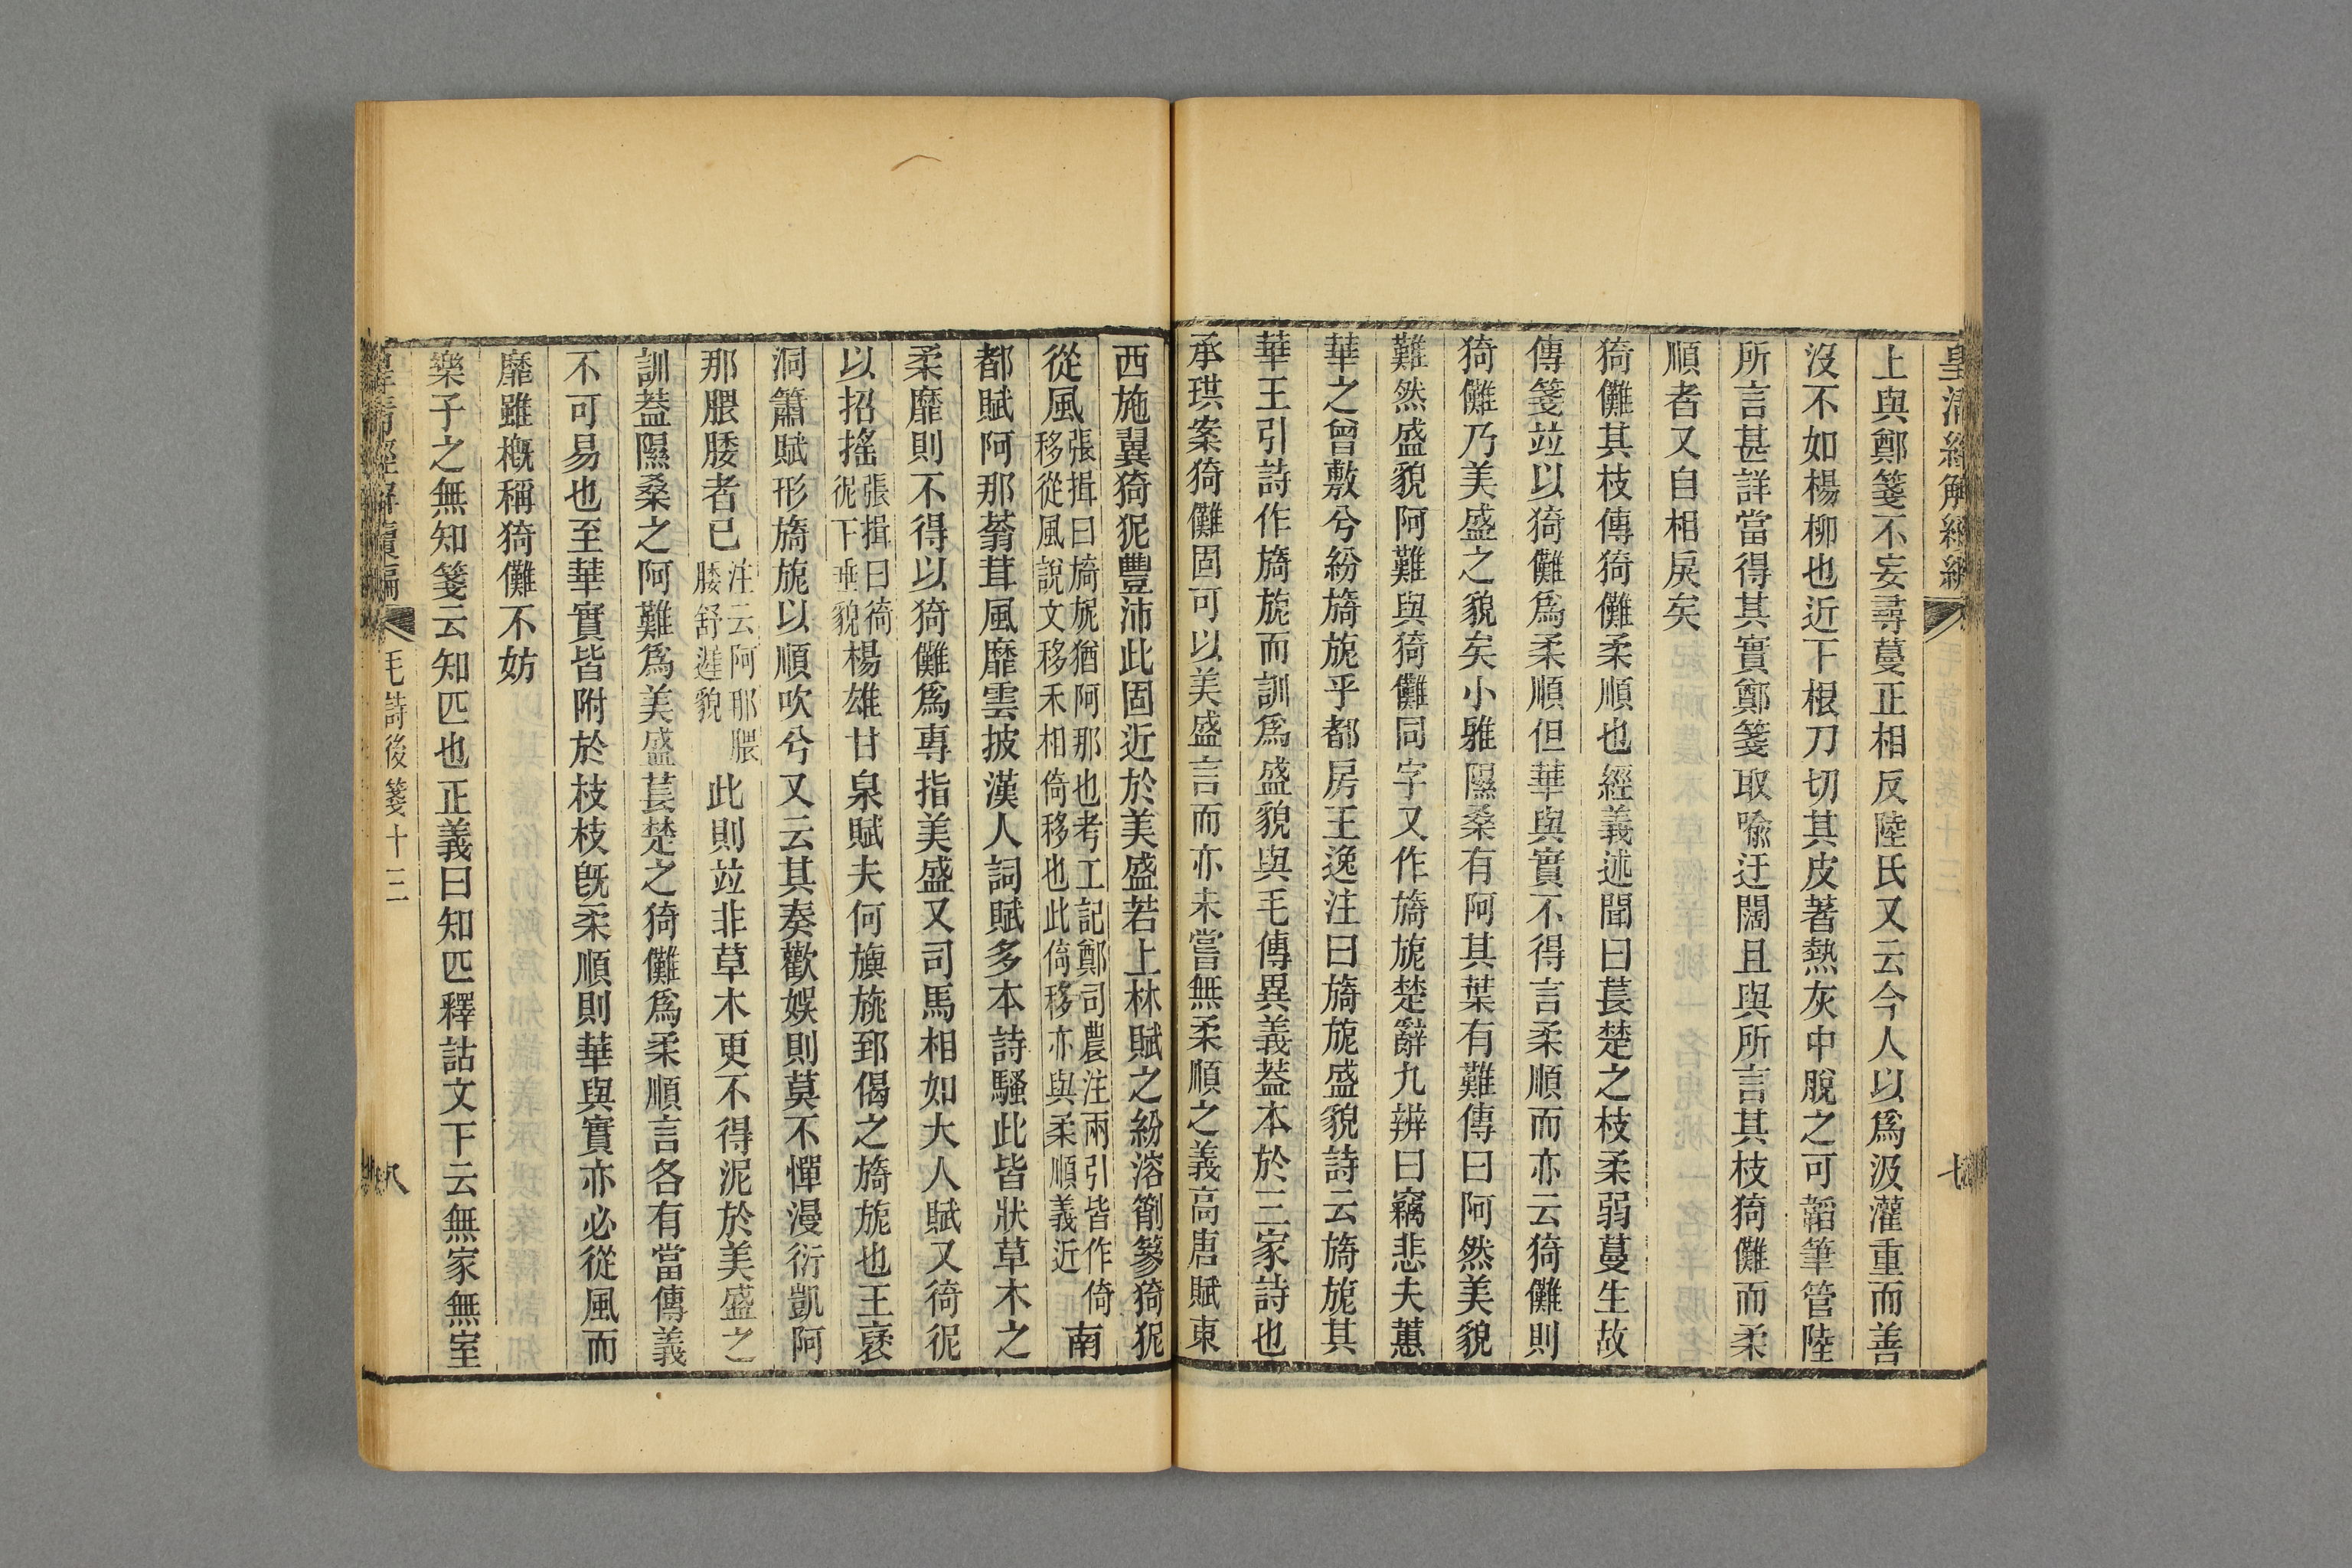 皇清經解續編
七
上與鄭箋不妄尋蔓正相反陸氏又云今人以為汲灌重而善
沒不如楊柳也近下根刀切其皮著熱灰中脫之可韜筆管陸
所言甚詳當得其實鄭箋取喻迂闊且與所言其枝猗儺而柔
順者又自相戾矣
猗儺其枝傳猗儺柔順也經義述聞曰萇楚之枝柔弱蔓生故
傳箋竝以猗儺為柔順但華與實不得言柔順而亦云猗儺則
猗儺乃美盛之貌矣小雅隰桑有阿其葉有難傳曰阿然美貌
難然盛貌阿難與猗儺同字又作旖旎楚辭九辨曰竊悲夫蕙
華之曾敷兮紛旖旎乎都房王逸注曰旖旎盛貌詩云旖旎其
華王引詩作旖旎而訓為盛貌與毛傳異義葢本於三家詩也
承珙案猗儺固可以美盛言而亦未嘗無柔順之義高唐賦東
西施翼猗狔豐沛此固近於美盛若上林賦之紛溶箾蔘猗狔
從風張揖曰旖旎猶阿那也考工記鄭司農注兩引皆作倚移從風說文移禾相倚移也此倚移亦與柔順義近南
都賦阿那蓊茸風靡雲披漢人詞賦多本詩騷此皆狀草木之
柔靡則不得以猗儺為專指美盛又司馬相如大人賦又猗抳
以招搖張揖曰猗抳下垂貌楊雄甘泉賦夫何旟旐郅偈之旖旎也王襃
洞簫賦形旖旎以順吹兮又云其奏歡娛則莫不憚漫衍凱阿
那腲腇者已注云阿那腲腇舒遲貌此則竝非草木更不得泥於美盛之
訓葢隰桑之阿難為美盛萇楚之猗儺為柔順言各有當傳義
不可易也至華實皆附於枝枝旣柔順則華與實亦必從風而
靡雖槪稱猗儺不妨
樂子之無知箋云知匹也正義曰知匹釋詁文下云無家無室
皇清經解續編
毛詩後箋十三
八